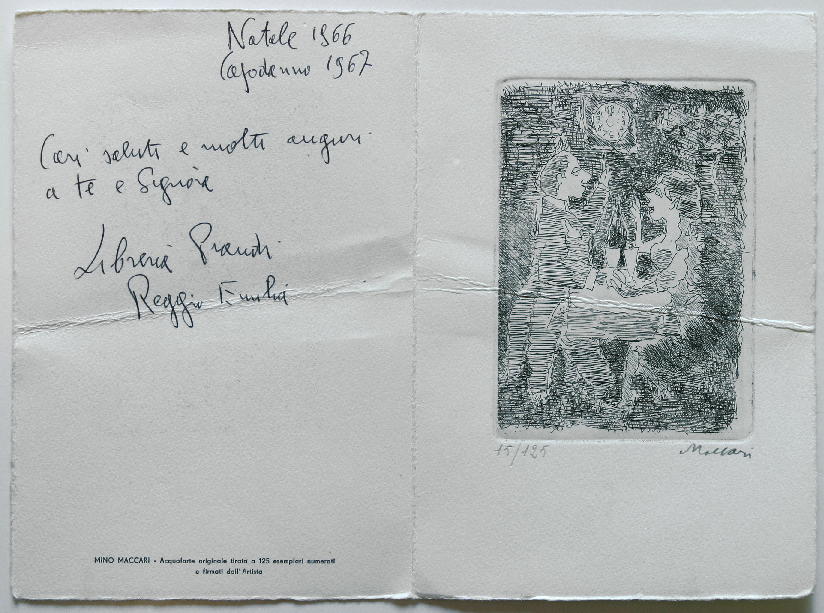 Natale 1966
Capodanno 1967
Cari saluti e molti auguri
a te e Signora
Libreria Prandi
Reggio Emilia
MINO MACCARI - Acquaforte originale tirata a 125 esemplari numerati
e firmati dall'Artista
15/125
Maccari